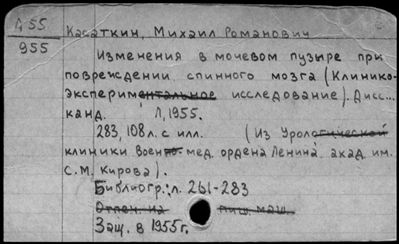 Д 55
955
Касаткин, Михаил Романович
Изменения в мочевом пузыре при
повреждении спинного мозга (Клинико-
экспериментальное исследование). Дисс...
канд. Л, 1955.
283, 108 л. с илл. (Из Урологической
клиники Военно-мед. ордена Ленина акад. им.
С.М. Кирова).
Библиогр.: л. 261-283
Отпеч. на пиш. маш.
Защ. в 1955 г.